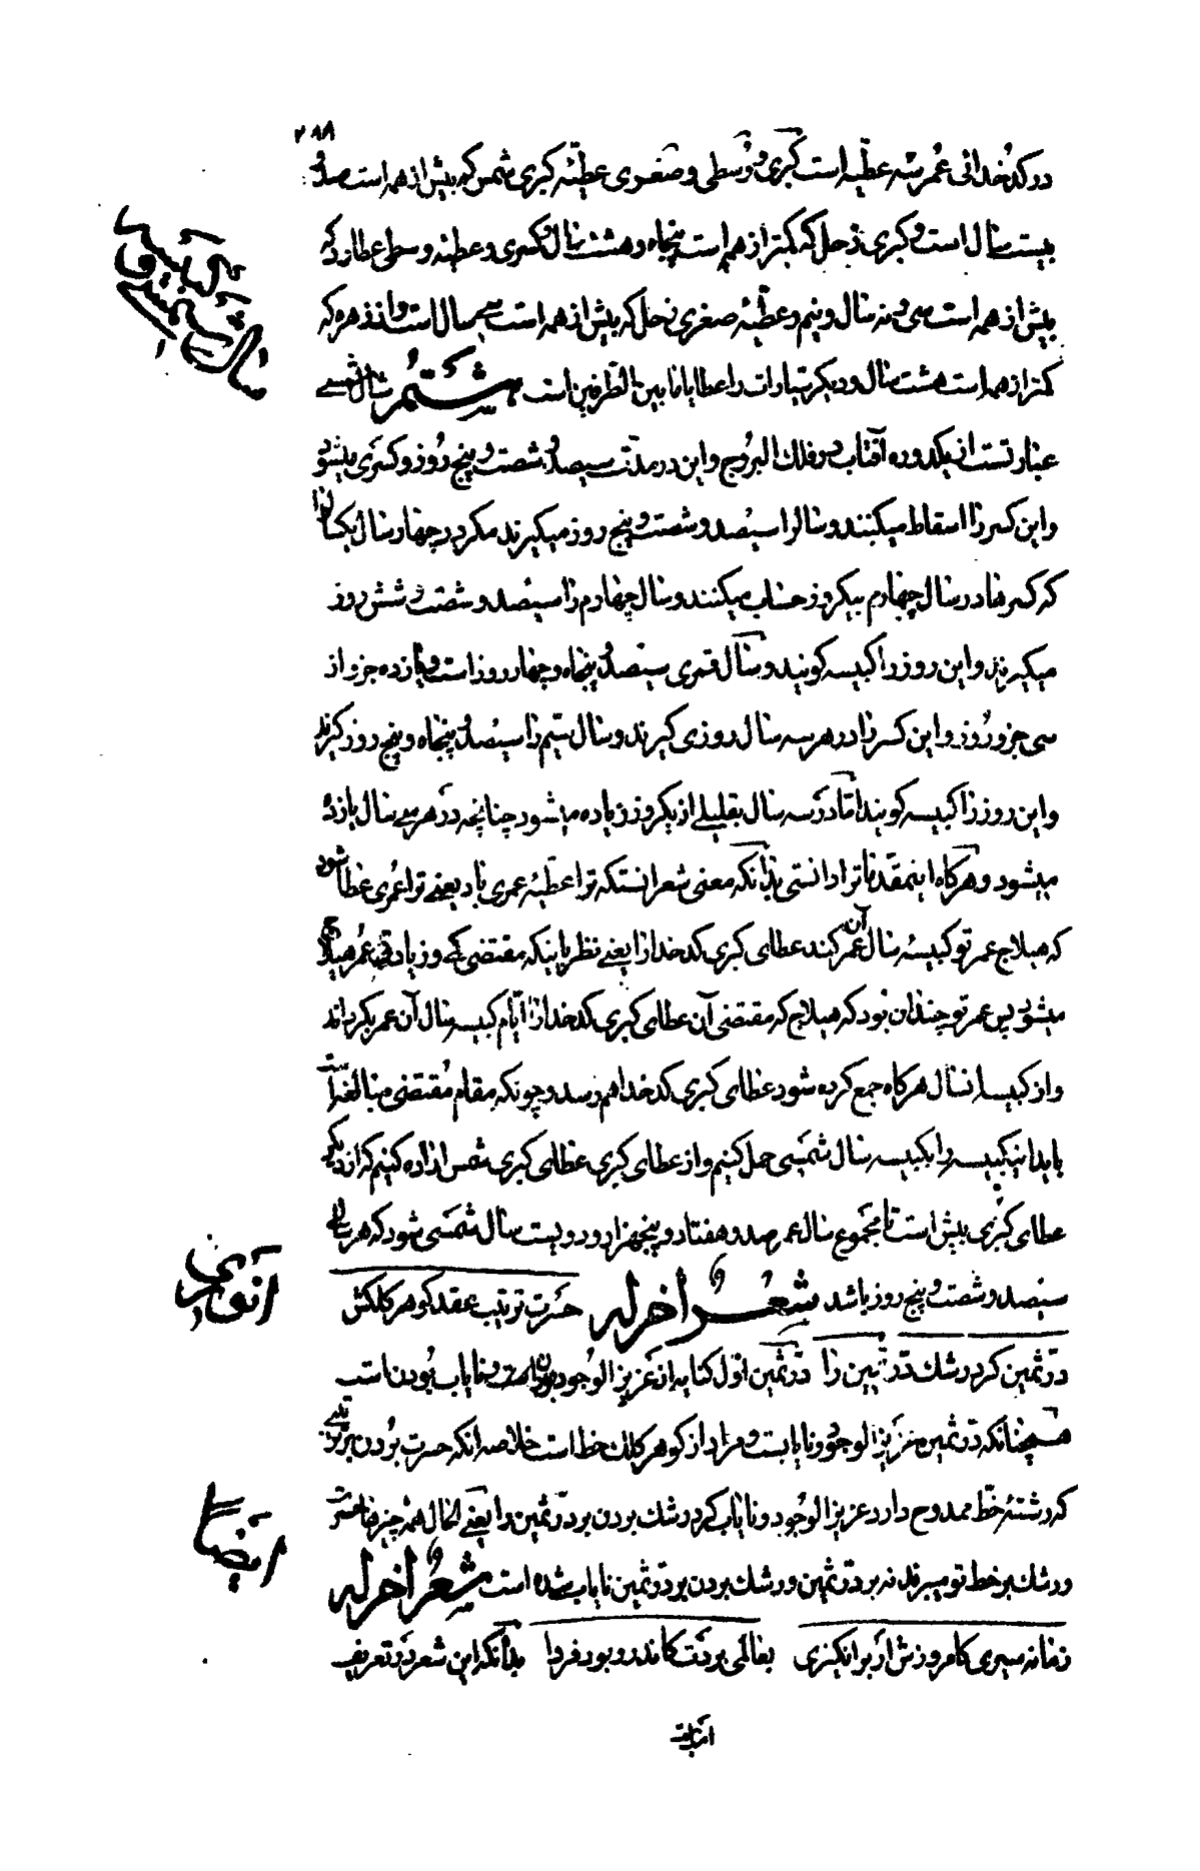 ۲۸۸
در کدخدائی عمر سه عطیه است کبری و وسطی و صغری عطیّهٔ کبری شمس که بیش از همه است صد و
بیست سال است و کبری زحل که کمتر از همه است پنجاه و هشت سال و کسری و عطیه وسطی عطارد که
بیش از همه است سی و نه سال و نیم و عطیّهٔ صغری زحل که بیش از همه است سی سال است و از زهره که
کمتر از همه است هشت سال و دیگر سیارات را عطایا ما بین الطرفین است هشتم سال شمسی
عبارتست از یکدوره آفتاب در فلک البروج و این در مدّت سیصد و شصت و پنج روز و کسری میشود
و این کسر را اسقاط میکنند و سال را سیصد و شصت و پنج روز میگیرند مگر در چهار سال یکسال را
که کسرها در سال چهارم بیکروز حساب میکنند و سال چهارم را سیصد و شصت و شش روز
میگیرند و این روز را کبیسه گویند و سال قمری سیصد و پنجاه و چهار روز است و یازده جزو از
سی جزو روز و این کسر را در هر سه سال روزی گیرند و سال سیم را سیصد و پنجاه و پنج روز گیرند
و این روز را کبیسه گویند امّا در سه سال بقلیلی از یکروز زیاده میشود چنانچه در هر سی سال یازده
میشود و هرگاه اینمقدمات را دانستی بدانکه معنی شعر انستکه ترا عطیّهٔ عمری باد یعنی ترا عمری عطا شود
که هیلاج عمر تو کبیسهٔ سال آن عمر کند عطای کبری کدخدا را یعنی نظر باینکه مقتضی کمی و زیادتی عمر هیلاج
میشود پس عمر تو چندان بود که هیلاج که مقتضی آن عطای کبری کدخدا را ایّام کبیسه سال آن عمر بگرداند
و از کبیسه انسال هرگاه جمع کرده شود عطای کبری کدخدا هم رسد و چونکه مقام مقتضی مبالغه است
باید اینکبیسه را بکبیسه سال شمسی حمل کنیم و از عطای کبری عطای کبری شمس اراده کنیم که از دیگر
عطای کبری بیش است تا مجموع سال عمر صد و هفتاد و پنجهزار و دویست سال شمسی شود که هر سالی
سیصد و شصت و پنج روز باشد شعر و اخر له حسرت ترتیب عقد گوهر کلکش
درّ ثمین کرد رشک درّ ثمین را درّ ثمین اول کنایه از عزیز الوجود بودن است و نایاب بودن است
همچنانکه درّ ثمین عزیز الوجود و نایابست و مراد از گوهر کلک خط است خلاصه انکه حسرت بردن بر ترتیبی
که رشتهٔ خطّ ممدوح دارد عزیز الوجود و نایاب کرد رشک بردن بر درّ ثمین را یعنی الحال همه چیز را حسرت
و رشک بر خط تو میبرند نه بر درّ ثمین و رشک بردن بر درّ ثمین نایاب شده است شعر و اخر له
زمانه سیری کامروزش ار برانگیزی بعالمی بردت کاندرو بود فردا بدانکه این شعر در تعریف
سال شمسی و قمری کبیسه
انوری
ایضاً